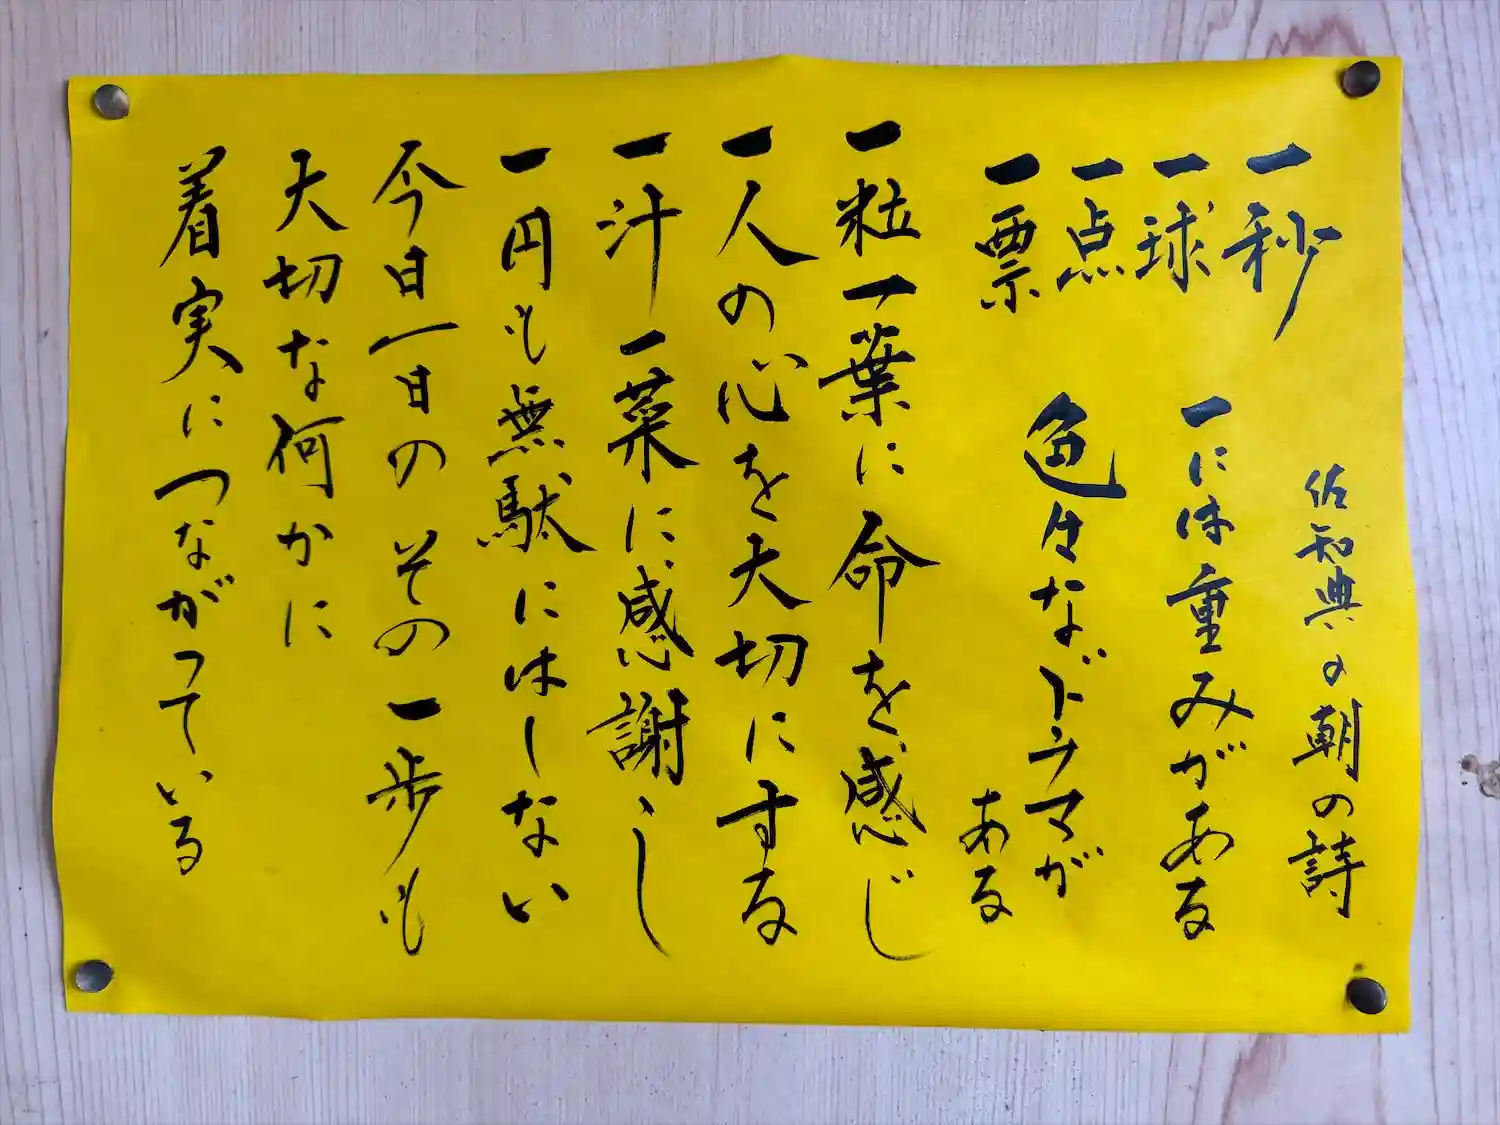 佐知典の朝の詩
一秒
一球
一点
一票
一には重みがある
色々なドラマが
ある
一粒一葉に命を感じ
一人の心を大切にする
一汁一菜に感謝し
一円も無駄にはしない
今日一日のその一歩も
大切な何かに
着実につながっている